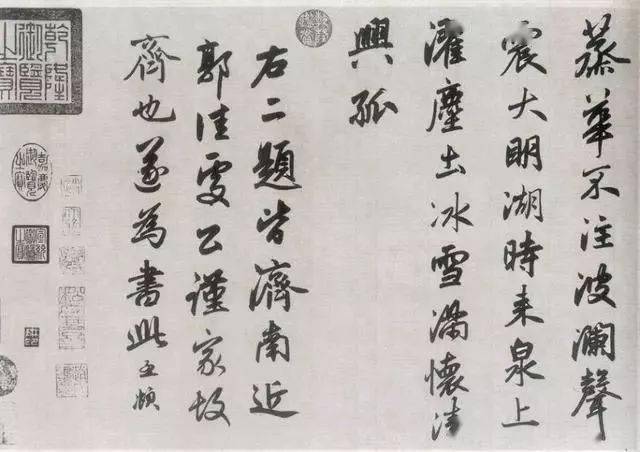 蒸華不注波瀾聲
震大明湖時来泉上
濯塵土冰雪滿懷清
興孤
右二題皆濟南近
郭佳處公謹家故
齊也遂為書此孟頫
乾隆御覽之寶
嘉慶御覽之寶